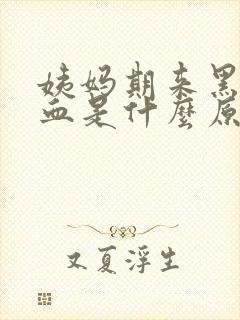 姨妈期来黑
血是什麼原
又夏浮生